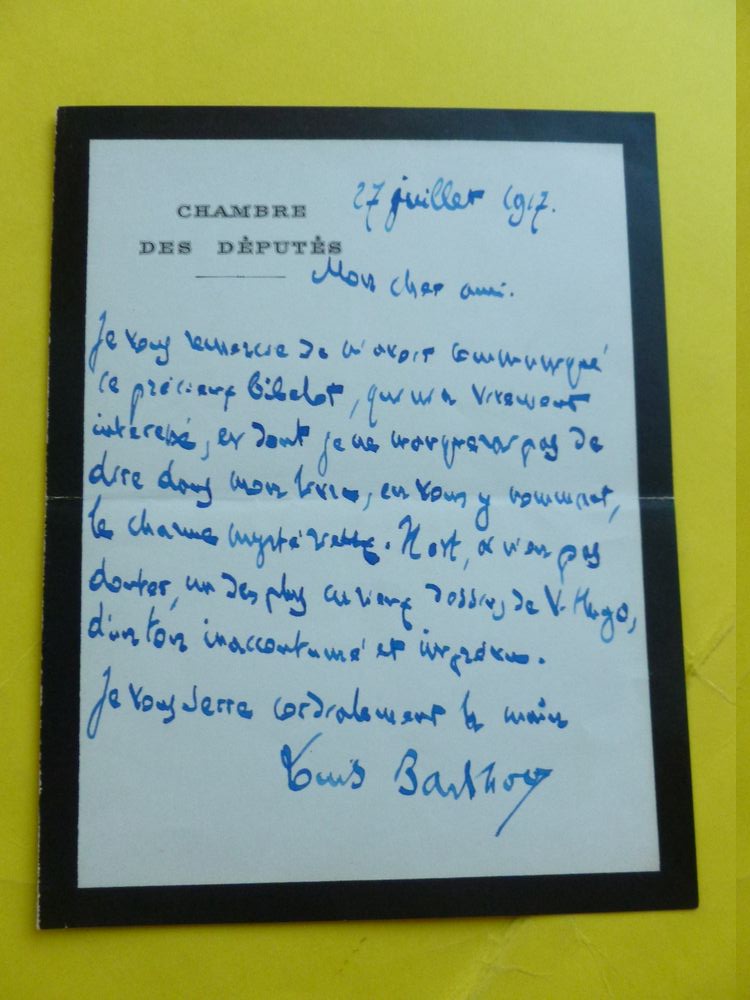 CHAMBRE
DES DÉPUTÉS
27 juillet 1917.
Mon cher ami.
Je vous remercie de m'avoir communiqué
ce précieux bibelot, qui m'a vivement
intéressé, et dont je ne manquerai pas de
dire dans mon livre, en vous y nommant,
le charme mystérieux. Il est, à n'en pas
douter, un des plus curieux dessins de V. Hugo,
d'un ton inaccoutumé et imprévu.
Je vous serre cordialement la main
Louis Barthou